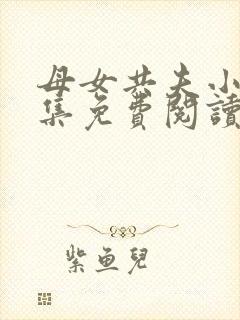 母女共夫小
集免費閱讀
紫魚兒